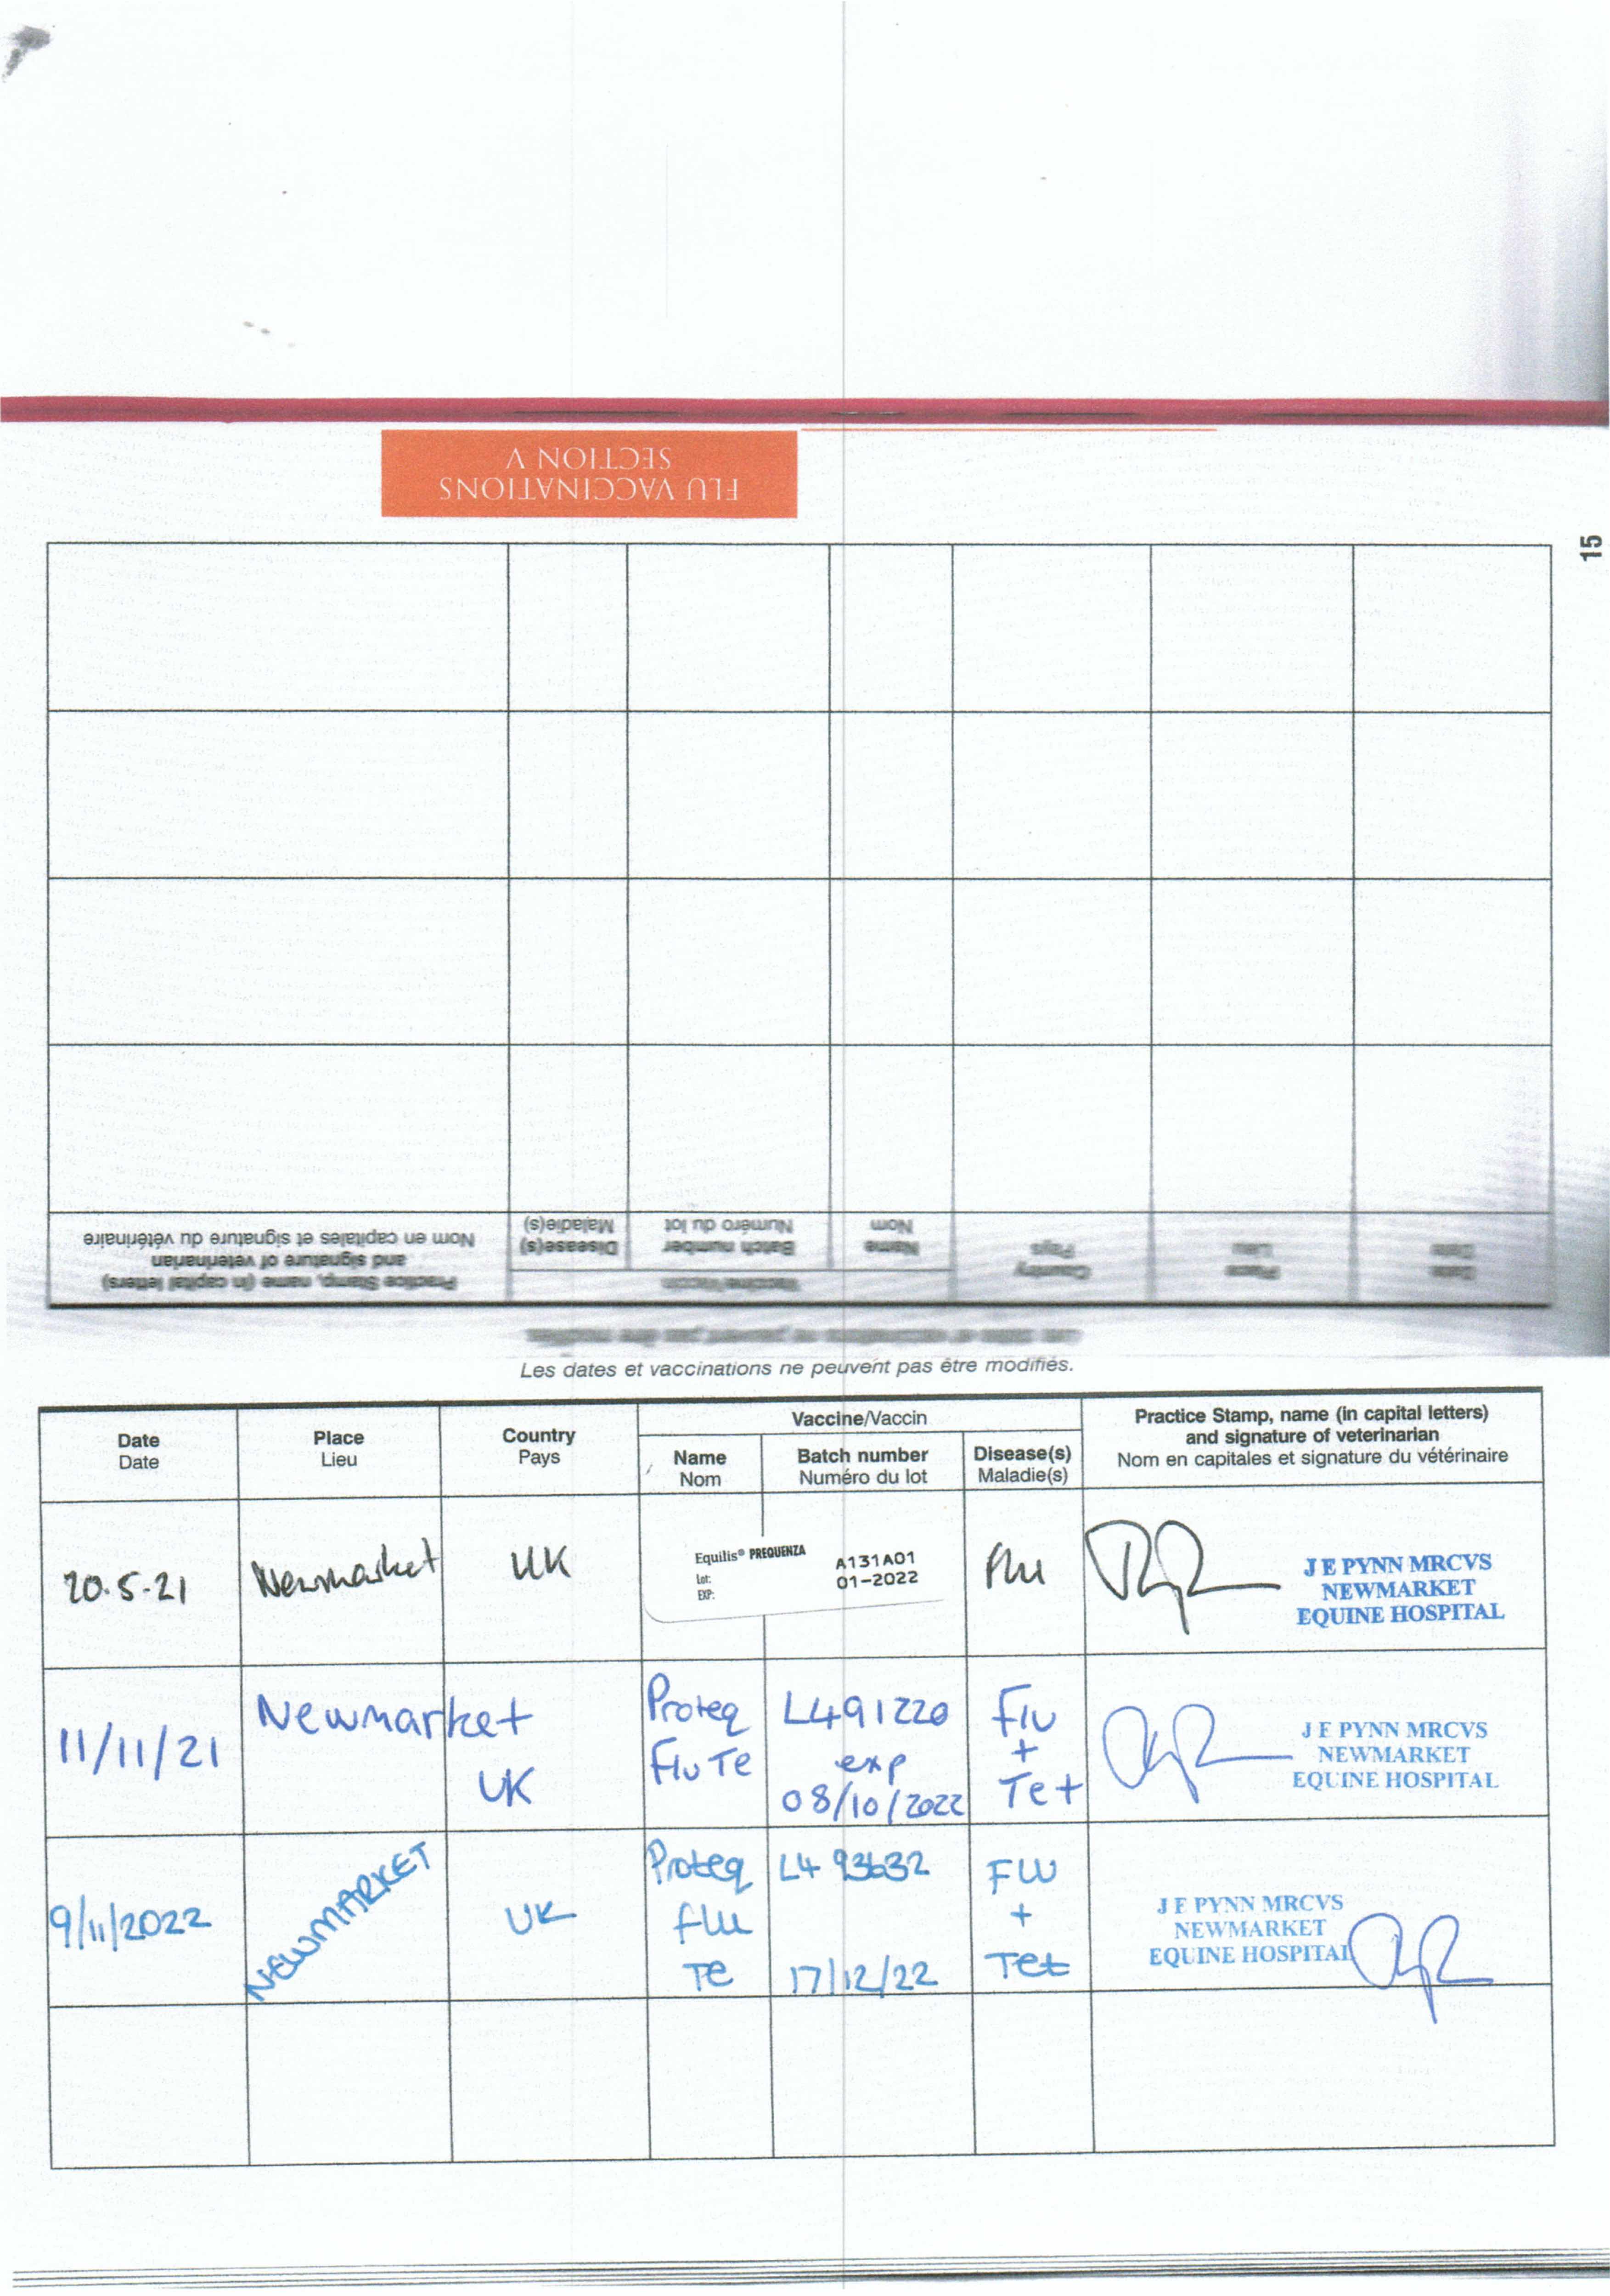 FLU VACCINATIONS
SECTION V
15
Practice Stamp, name (in capital letters)
and signature of veterinarian
Nom en capitales et signature du vétérinaire
Vaccine/Vaccin
Disease(s)
Maladie(s)
Batch number
Numéro du lot
Name
Nom
Country
Pays
Place
Lieu
Date
Date
Les dates et vaccinations ne peuvent pas être modifiés.
Les dates et vaccinations ne peuvent pas être modifiés.
Date
Date
Place
Lieu
Country
Pays
Vaccine/Vaccin
Name
Nom
Batch number
Numéro du lot
Disease(s)
Maladie(s)
Practice Stamp, name (in capital letters)
and signature of veterinarian
Nom en capitales et signature du vétérinaire
20.5.21
Newmarket
UK
Equilis® PREQUENZA
Lot: A131A01
EXP: 01-2022
Flu
J E PYNN MRCVS
NEWMARKET
EQUINE HOSPITAL
11/11/21
Newmarket
UK
Proteq
Flu Te
L491220
exp
08/10/2022
Flu
+
Tet
J E PYNN MRCVS
NEWMARKET
EQUINE HOSPITAL
9/11/2022
NEWMARKET
UK
Proteq
flu
Te
L493632
17/12/22
FLU
+
Tet
J E PYNN MRCVS
NEWMARKET
EQUINE HOSPITAL